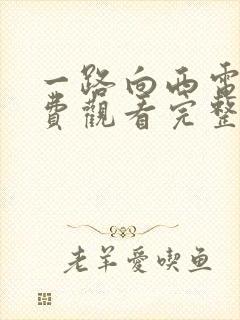 一路向西電
費觀看完整
老羊愛喫鱼